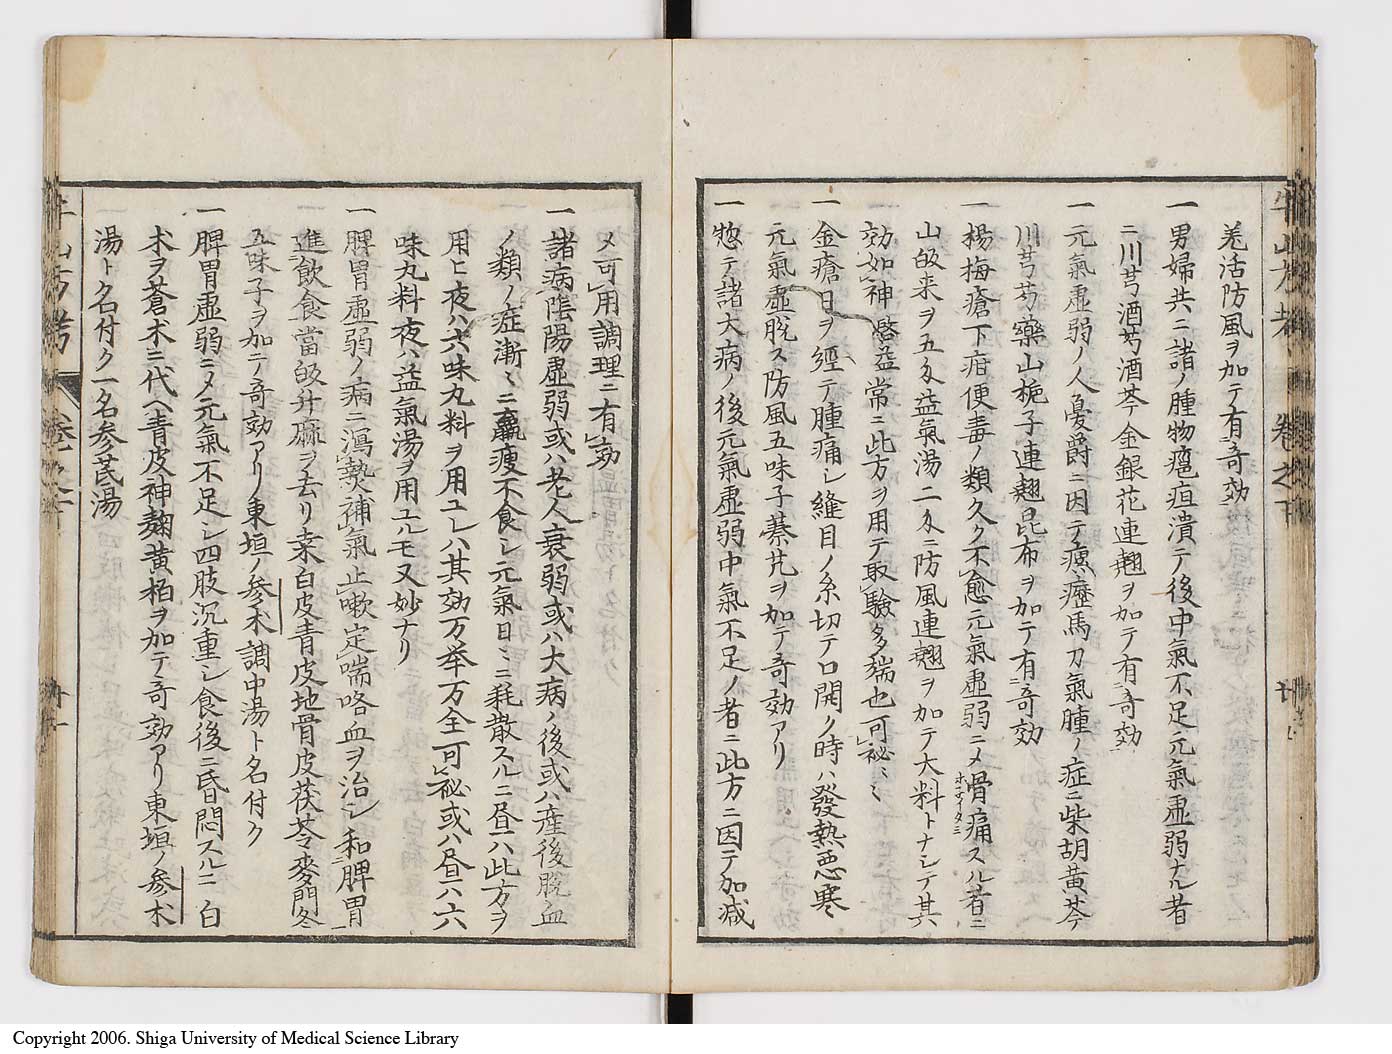 羌活防風ヲ加テ有奇効
一男婦共ニ諸ノ腫物癰疽潰テ後中氣不足元氣虚弱ナル者
ニ川芎酒芍酒芩金銀花連翹ヲ加テ有奇効
一元氣虚弱ノ人憂爵ニ因テ瘰癧馬刀氣腫ノ症ニ柴胡黄芩
川芎芍藥山梔子連翹昆布ヲ加テ有奇効
一楊梅瘡下疳便毒ノ類久ク不愈元氣虚弱ニメ骨痛スル者ニ
ホネイタミ
山皈来ヲ五匁益氣湯二匁ニ防風連翹ヲ加テ大料トナシテ其
効如神啓益常ニ此方ヲ用テ取驗多端也可秘〻
一金瘡日ヲ經テ腫痛シ縫目ノ糸切テ口開ク時ハ發熱悪寒
元氣虚脱ス防風五味子蓁艽ヲ加テ奇効アリ
一惣テ諸大病ノ後元氣虚弱中氣不足ノ者ニ此方ニ因テ加减
牛山方考 巻之下
メ可用調理ニ有効
一諸病陰陽虚弱或ハ老人衰弱或ハ大病ノ後或ハ産後脱血
ノ類ノ症漸〻ニ羸痩不食シ元氣日〻ニ耗散スルニ昼ハ此方ヲ
用ヒ夜ハ六味丸料ヲ用ユレハ其効万挙万全可秘或ハ昼ハ六
味丸料夜ハ益氣湯ヲ用ユルモ又妙ナリ
一脾胃虚弱ノ病ニ瀉𤍠補氣止嗽定喘咯血ヲ治シ和脾胃
進飲食當皈升麻ヲ去リ桒白皮青皮地骨皮茯苓麥門冬
五味子ヲ加テ奇効アリ東垣ノ参术調中湯ト名付ク
一脾胃虚弱ニメ元氣不足シ四肢沉重シ食後ニ昏悶スルニ白
术ヲ蒼术ニ代ヘ青皮神麹黄柏ヲ加テ奇効アリ東垣ノ参术
湯ト名付ク一名参芪湯
牛山方考 巻之下 廿一